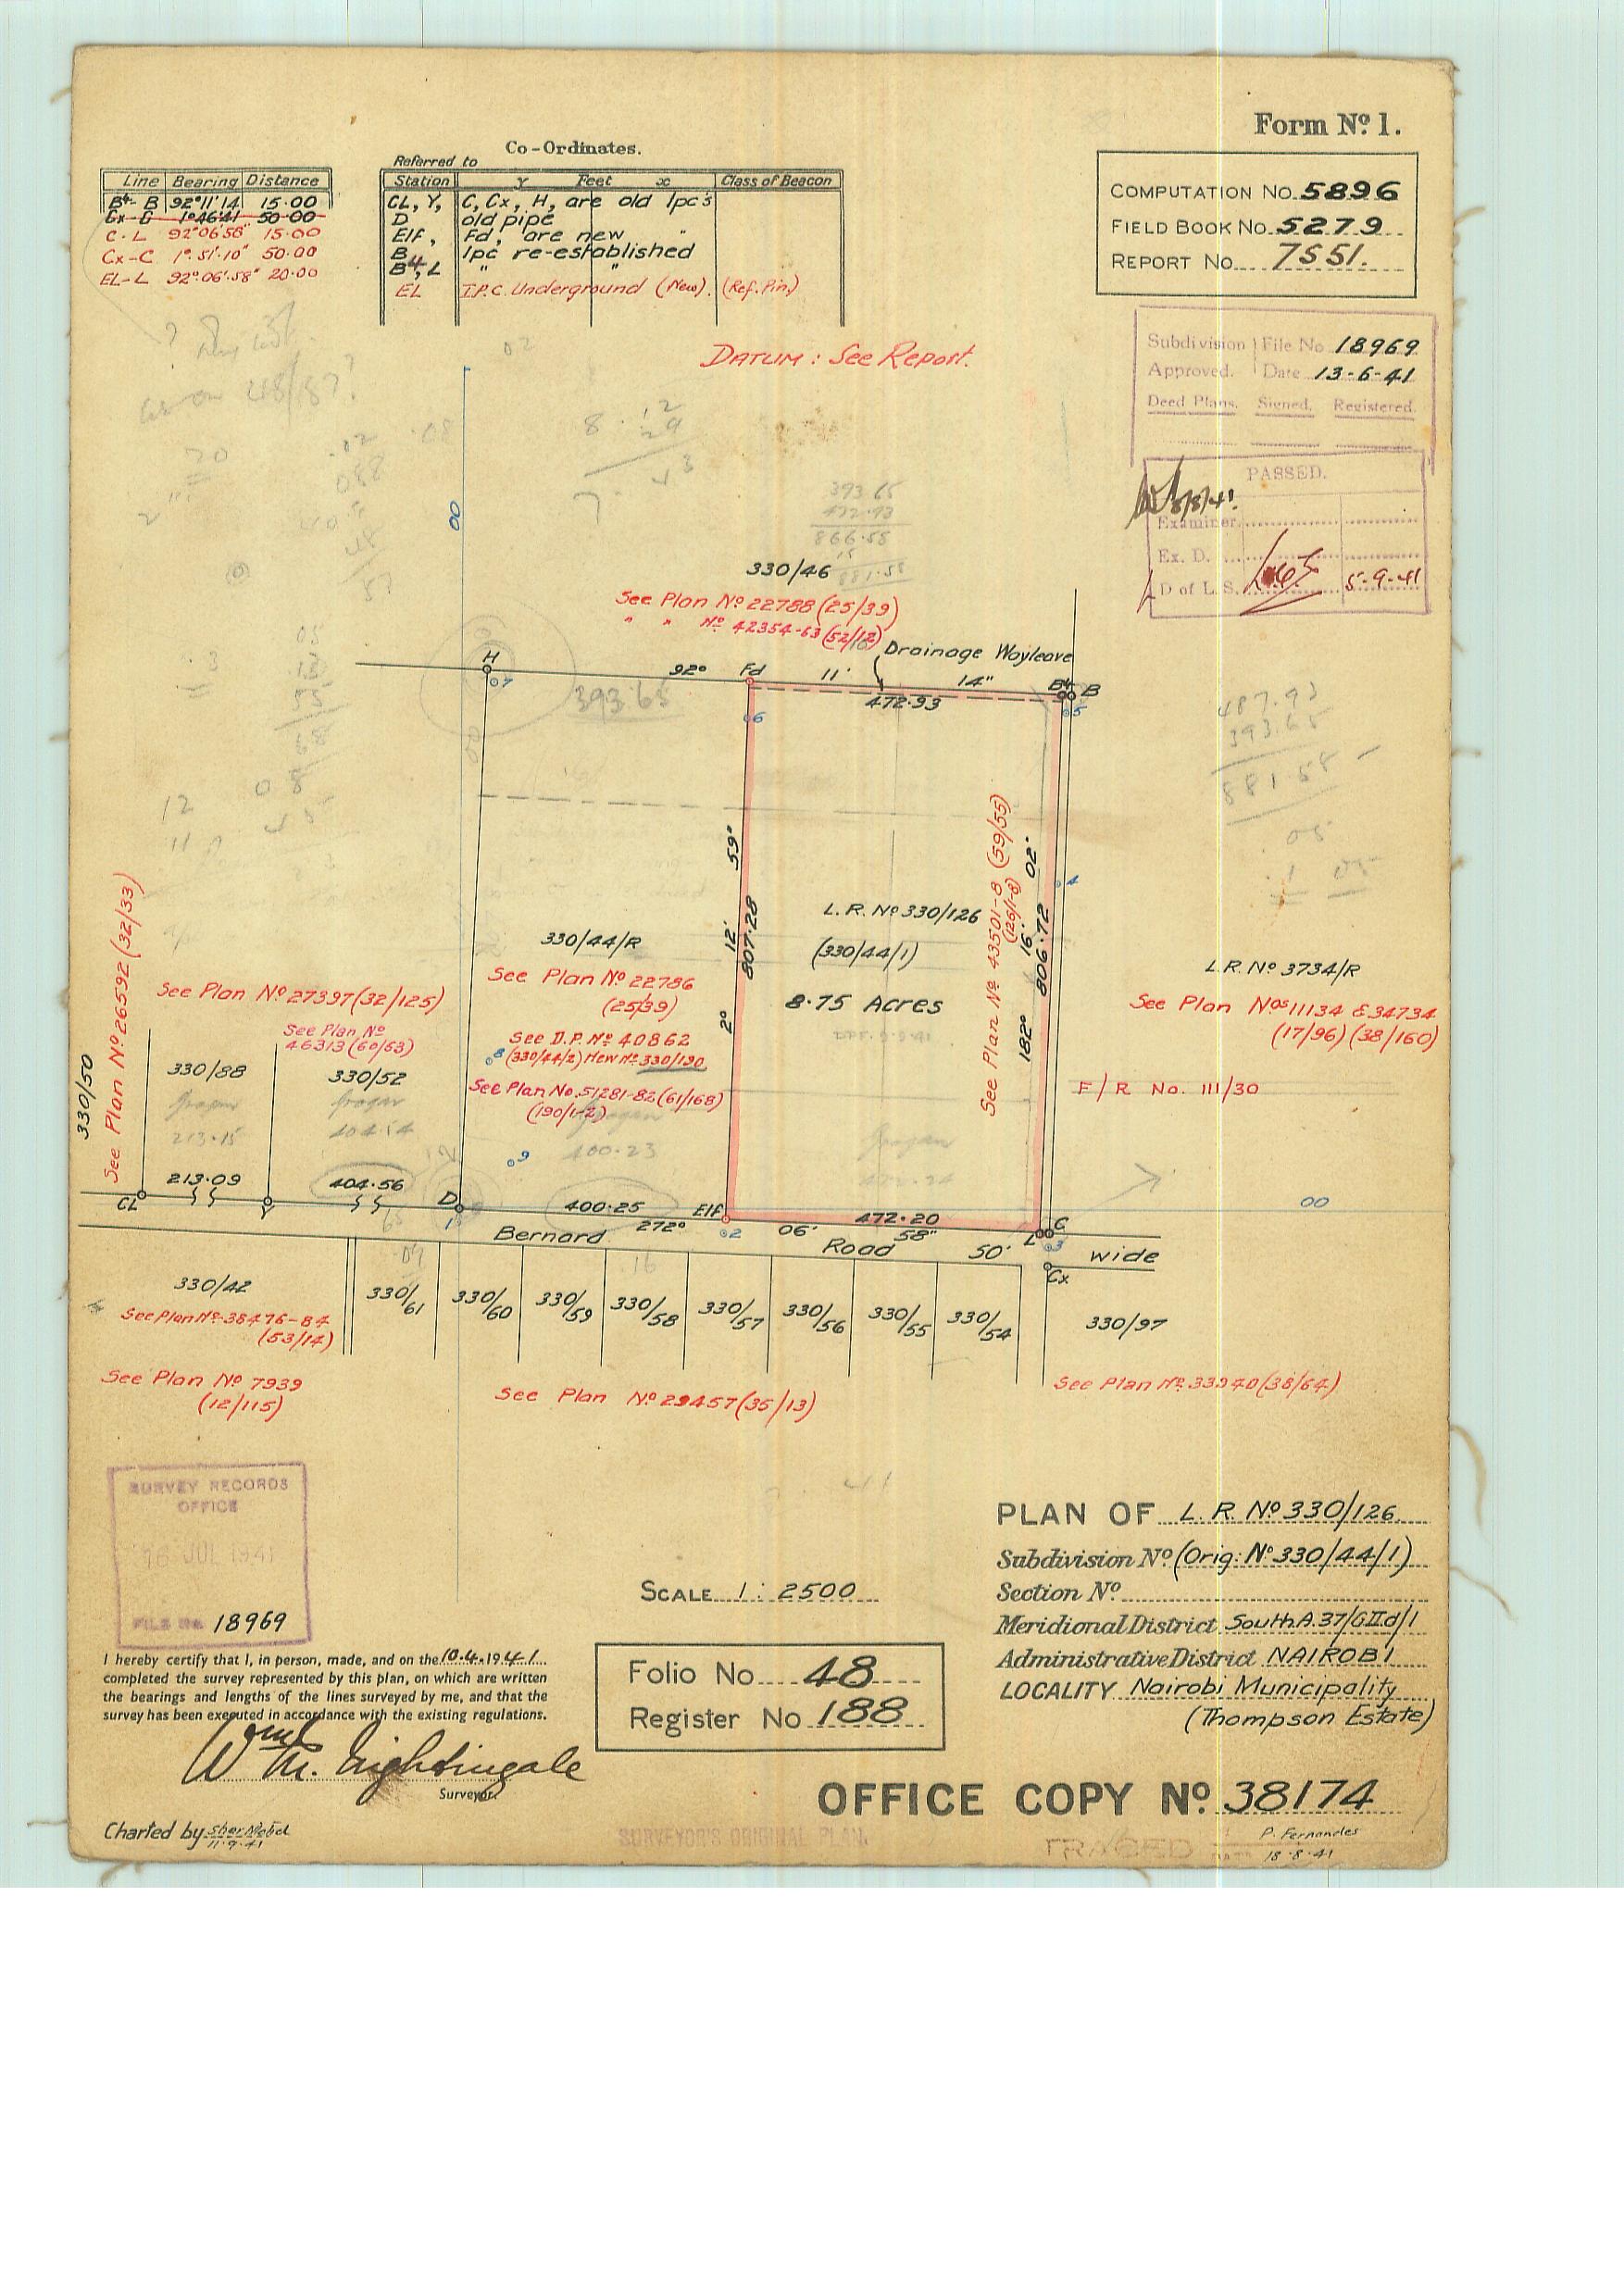 Form Nº 1.
Co-Ordinates.
Referred to
Line Bearing Distance
B4-B 92°11'14 15.00
Cx-C 1°46'41 50.00
C-L 92°06'58" 15.00
Cx-C 1°51'10" 50.00
EL-L 92°06'58" 20.00
Station Y Feet x Class of Beacon
CL, Y, C, Cx, H, are old Ipc's
D old pipe
E1f, Fd, are new "
B Ipc re-established
B4, L " "
EL I.P.C. Underground (New). (Ref. Pin)
COMPUTATION No. 5896
FIELD BOOK No. 5279
REPORT No. 7551.
DATUM: See Report.
Subdivision File No 18969
Approved. Date 13-6-41
Deed Plans. Signed. Registered.
PASSED.
Examiner
Ex. D.
D of L.S. 5-9-41
393.65
472.93
866.58
15
881.58
00
330/46
See Plan Nº 22788 (25/39)
" " Nº 42354-63 (52/12)
Drainage Wayleave
H
92° Fd 11' 14" B4 B
7
393.65
472.93
6
5
487.93
393.65
881.58
59°
12'
2°
807.28
L.R. Nº 330/126
(330/44/1)
8.75 Acres
See Plan Nº 43501-8 (59/55)
(126/1-8)
182° 16' 02"
806.72
4
330/44/R
See Plan Nº 22786
(25/39)
See D.P. Nº 40862
8 (330/44/2) New Nº 330/190
See Plan No. 51281-82 (61/168)
(190/1-2)
9
400.23
L.R. Nº 3734/R
See Plan Nos 11134 & 34734
(17/96) (38/160)
F/R No. 111/30
330/50
See Plan Nº 26592 (32/33)
See Plan Nº 27397 (32/125)
See Plan Nº
46313 (60/63)
330/88
330/52
213.15
404.54
213.09
404.56
CL Y D 400.25 E1f 472.20 L C
1 272° 2 06' 58" 3
00
Bernard Road 50' wide
Cx
330/42
330/61
330/60
330/59
330/58
330/57
330/56
330/55
330/54
330/97
See Plan Nº 38476-84
(53/14)
See Plan Nº 7939
(12/115)
See Plan Nº 29457 (35/13)
See Plan Nº 33940 (38/64)
SURVEY RECORDS
OFFICE
JUL 1941
FILE No. 18969
SCALE 1 : 2500
PLAN OF L. R. Nº 330/126
Subdivision Nº (Orig: Nº 330/44/1)
Section Nº
Meridional District South A.37/GIId/1
Administrative District NAIROBI
LOCALITY Nairobi Municipality
(Thompson Estate)
I hereby certify that I, in person, made, and on the 10.4.1941
completed the survey represented by this plan, on which are written
the bearings and lengths of the lines surveyed by me, and that the
survey has been executed in accordance with the existing regulations.
Wm. Nightingale
Surveyor.
Folio No 48
Register No 188
OFFICE COPY Nº 38174
Charted by
11.9.41
SURVEYOR'S ORIGINAL PLAN.
TRACED P. Fernandes
18.8.41